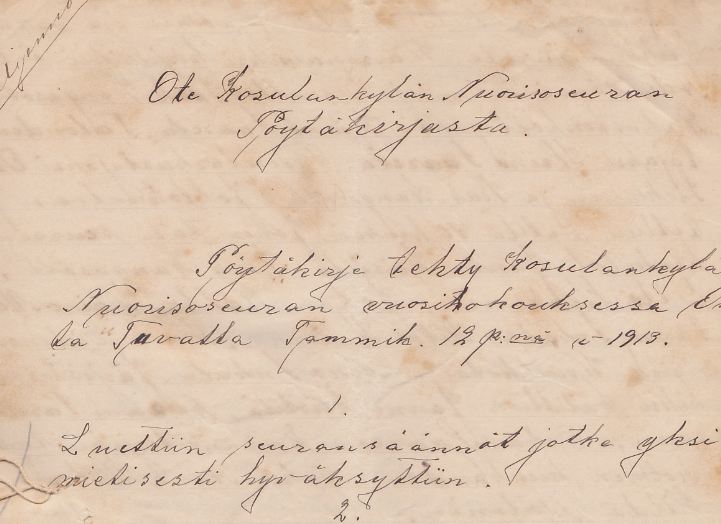 Ote Kosulankylän Nuorisoseuran
Pöytäkirjasta.
Pöytäkirja tehty Kosulankylä
Nuorisoseuran vuosikokouksessa
ta Tuvatta Tammik. 12 p:nä v 1913.
1.
Luettiin seuransäännöt jotka yksi
mielisesti hyväksyttiin.
2.